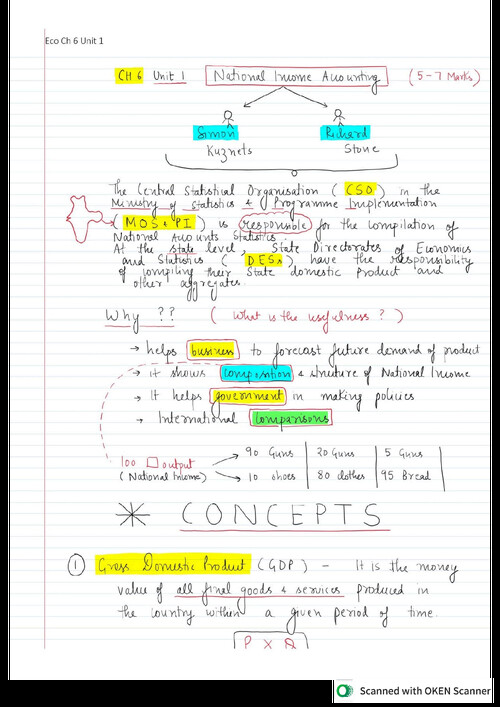 Eco Ch 6 Unit 1
CH 6 Unit 1 National Income Accounting (5-7 Marks)
Simon Richard
Kuznets Stone
The Central Statistical Organisation (CSO) in the
Ministry of Statistics & Programme Implementation
(MOS & PI) is responsible for the compilation of
National Accounts Statistics.
At the state level, State Directorates of Economics
and Statistics (DESs) have the responsibility
of compiling their State domestic product and
other aggregates.
Why ?? (What is the usefulness?)
→ helps business to forecast future demand of product
→ it shows composition & structure of National Income
→ It helps government in making policies
→ International Comparisons
100 output → 90 Guns | 20 Guns | 5 Guns
(National Income) → 10 shoes | 80 clothes | 95 Bread
CONCEPTS
① Gross Domestic Product (GDP) - It is the money
value of all final goods & services produced in
the country within a given period of time.
P X Q
Scanned with OKEN Scanner